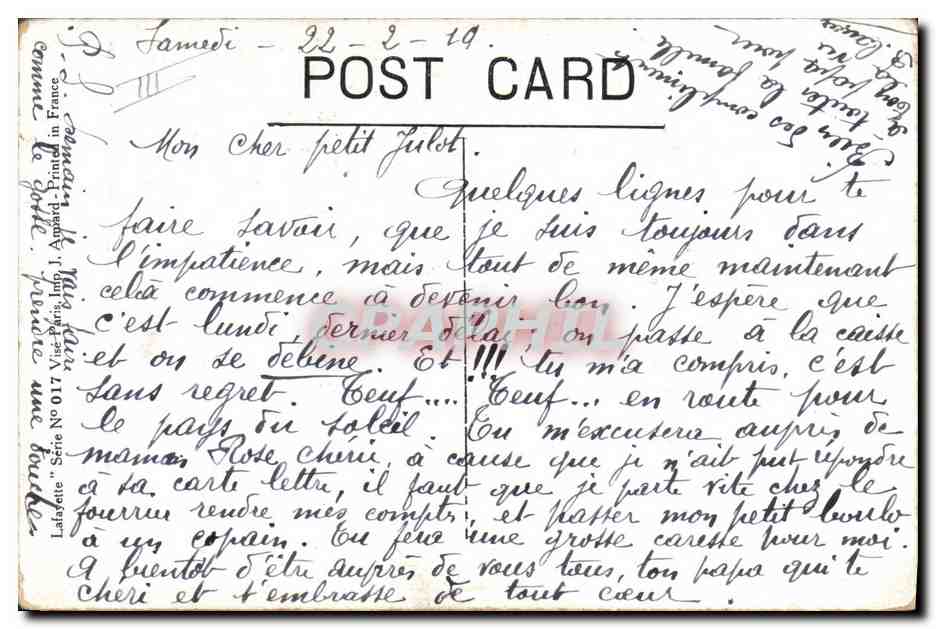 Samedi - 22 - 2 - 19.
POST CARD
Mon cher petit Julot.
Quelques lignes pour te
faire savoir, que je suis toujours dans
l'impatience, mais tout de même maintenant
celà commence à devenir bon. J'espère que
c'est lundi dernier délai on passe à la caisse
et on se débine. Et !!! tu m'a compris, c'est
sans regret. Teuf.... Teuf... en route pour
le pays du soleil. Tu m'excusera auprès de
maman Rose chérie, à cause que je n'ait put répondre
à sa carte lettre, il faut que je parte vite chez le
fourrier rendre mes compts, et passer mon petit boulo
à un copain. Tu fera une grosse caresse pour moi.
A bientôt d'être auprès de vous tous, ton papa qui te
chéri et t'embrasse de tout cœur.
Bien des compliments
à toutes la famille
Ton papa pour
la vie
Louis
demain je vais faire
comme le gosse. prendre une douche
Lafayette" Série Nº 017 Visé Paris, Imp. J. Ampard - Printed in France
GRAPHIL